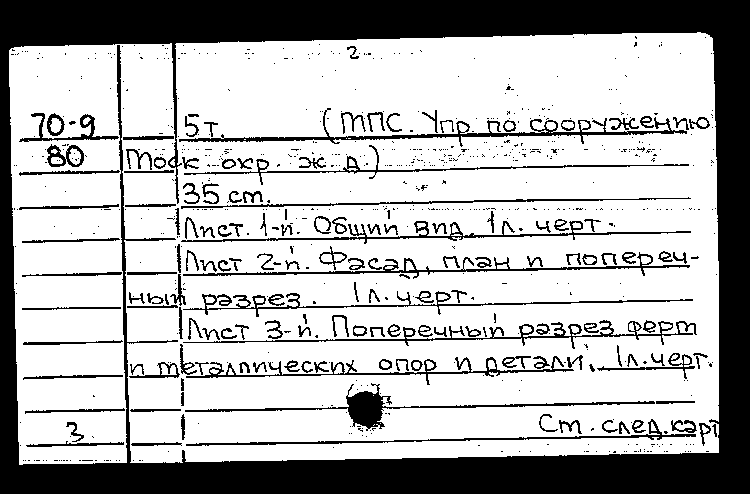 2
70-9 5т. (МПС. Упр по сооружению
80 Моск. окр. ж. д.)
35 cm.
Лист. 1-й. Общий вид. 1л. черт.
Лист 2-й. Фасад, план и попереч-
ный разрез. 1л. черт.
Лист 3-й. Поперечный разрез ферм
и металлических опор и детали. 1л. черт.
3 См. след. карт